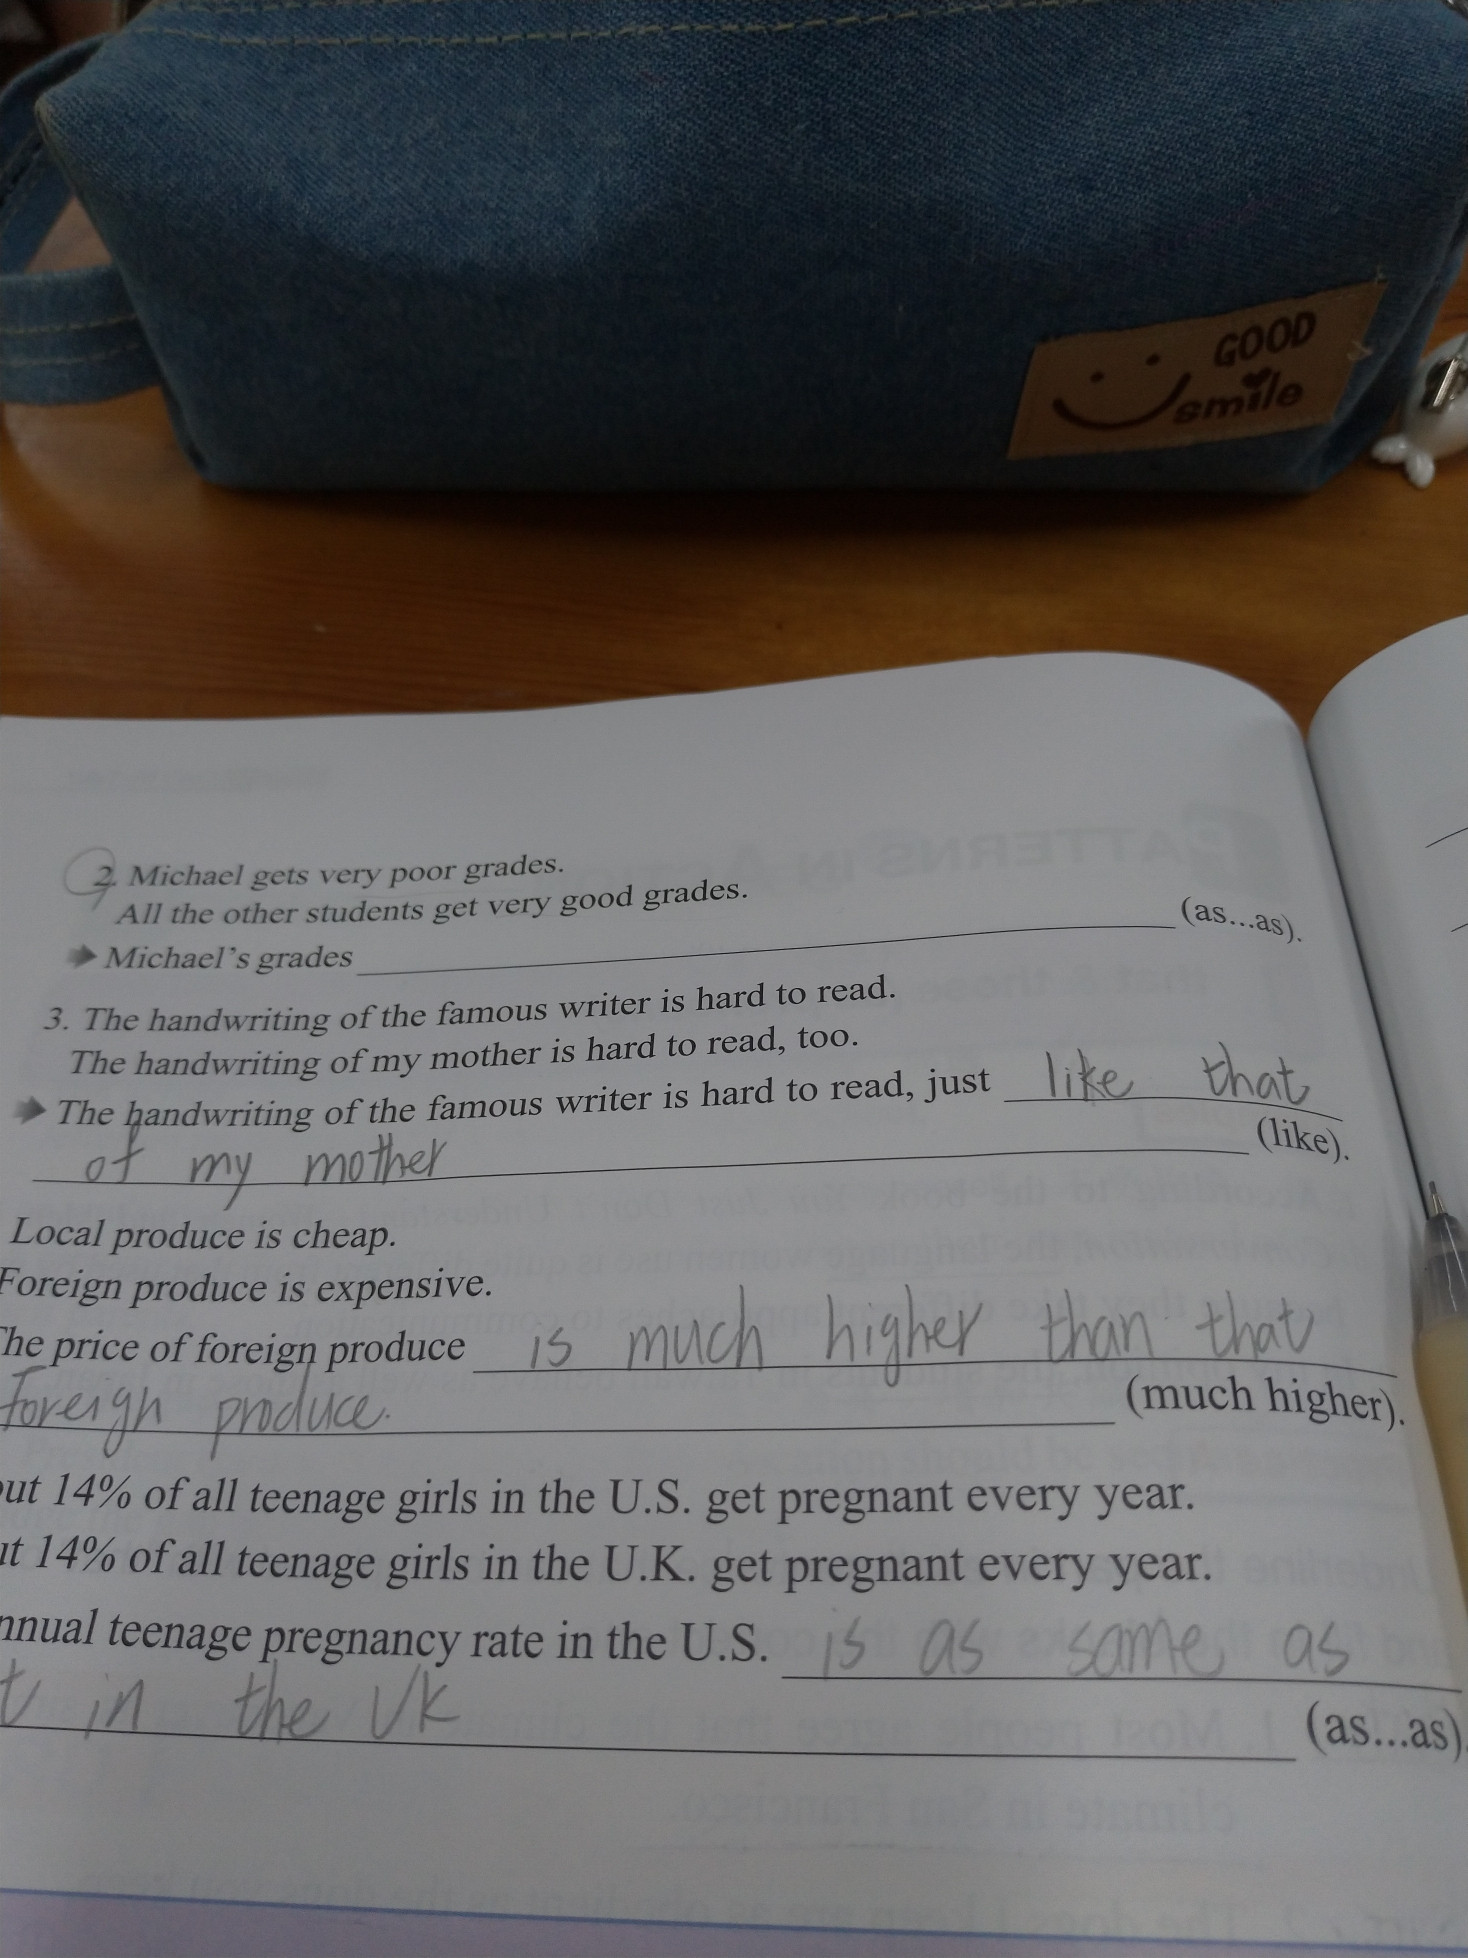 GOOD
smile
2. Michael gets very poor grades.
All the other students get very good grades.
Michael's grades (as...as).
3. The handwriting of the famous writer is hard to read.
The handwriting of my mother is hard to read, too.
The handwriting of the famous writer is hard to read, just like that
of my mother (like).
Local produce is cheap.
Foreign produce is expensive.
The price of foreign produce is much higher than that
foreign produce. (much higher).
out 14% of all teenage girls in the U.S. get pregnant every year.
ut 14% of all teenage girls in the U.K. get pregnant every year.
nnual teenage pregnancy rate in the U.S. is as same as
t in the UK (as...as).